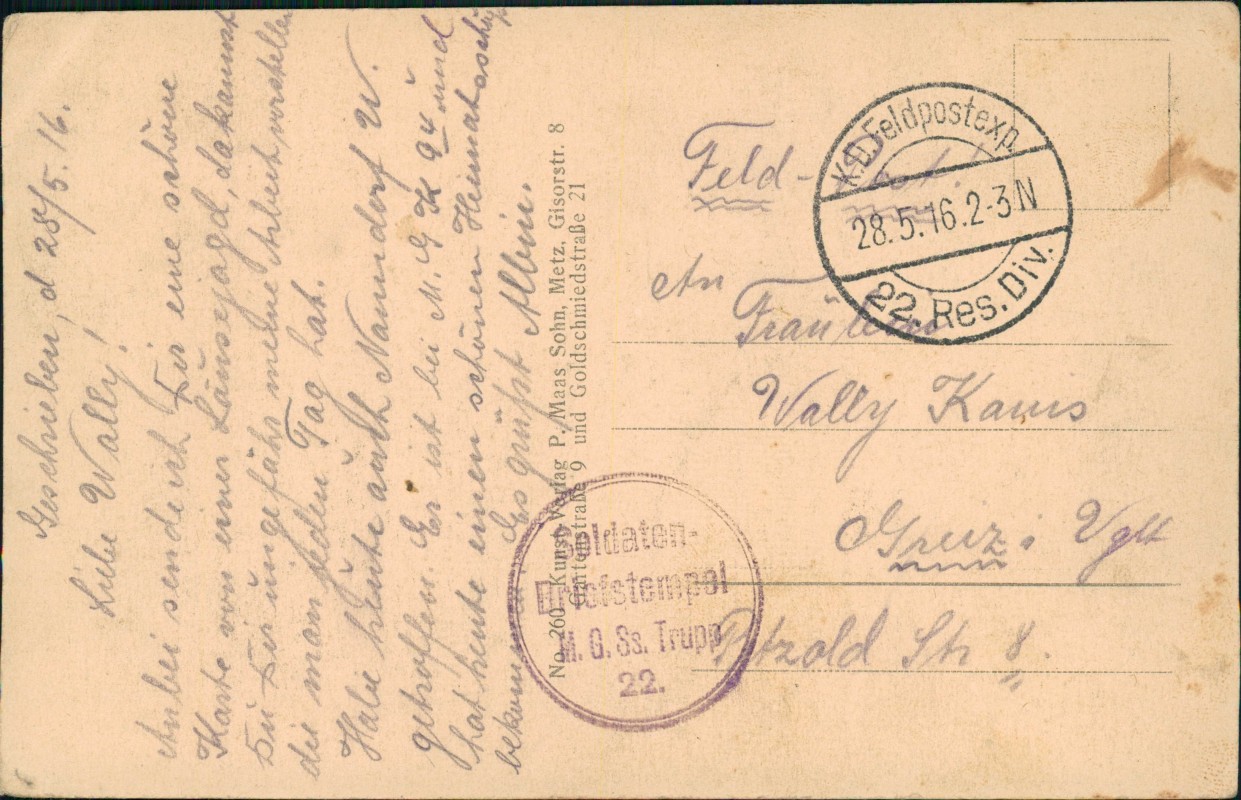 Geschrieben, d 28/5. 16.
Liebe Wally!
Anbei sende ich Dir eine schöne
Karte von einer Läusejagd, da kannst
Du Dir ungefähr meine Arbeit vorstellen
die man jeden Tag hat.
Habe heute auch Naundorf W.
getroffen. Er ist bei M. G K 94 und
hat heute einen schönen Heimatsschuß
bekommen Es grüßt Albin.
No. 260 Kunst-Verlag P. Maas Sohn, Metz, Gisorstr. 8
9 und Goldschmiedstraße 21
Feld-Post.
K.D. Feldpostexp.
28.5.16.2-3N
22. Res. Div.
An
Fräulein
Wally
Greiz i Vgtl
Petzold Str 8.
Soldaten-
Briefstempel
M. G. Ss. Trupp
22.